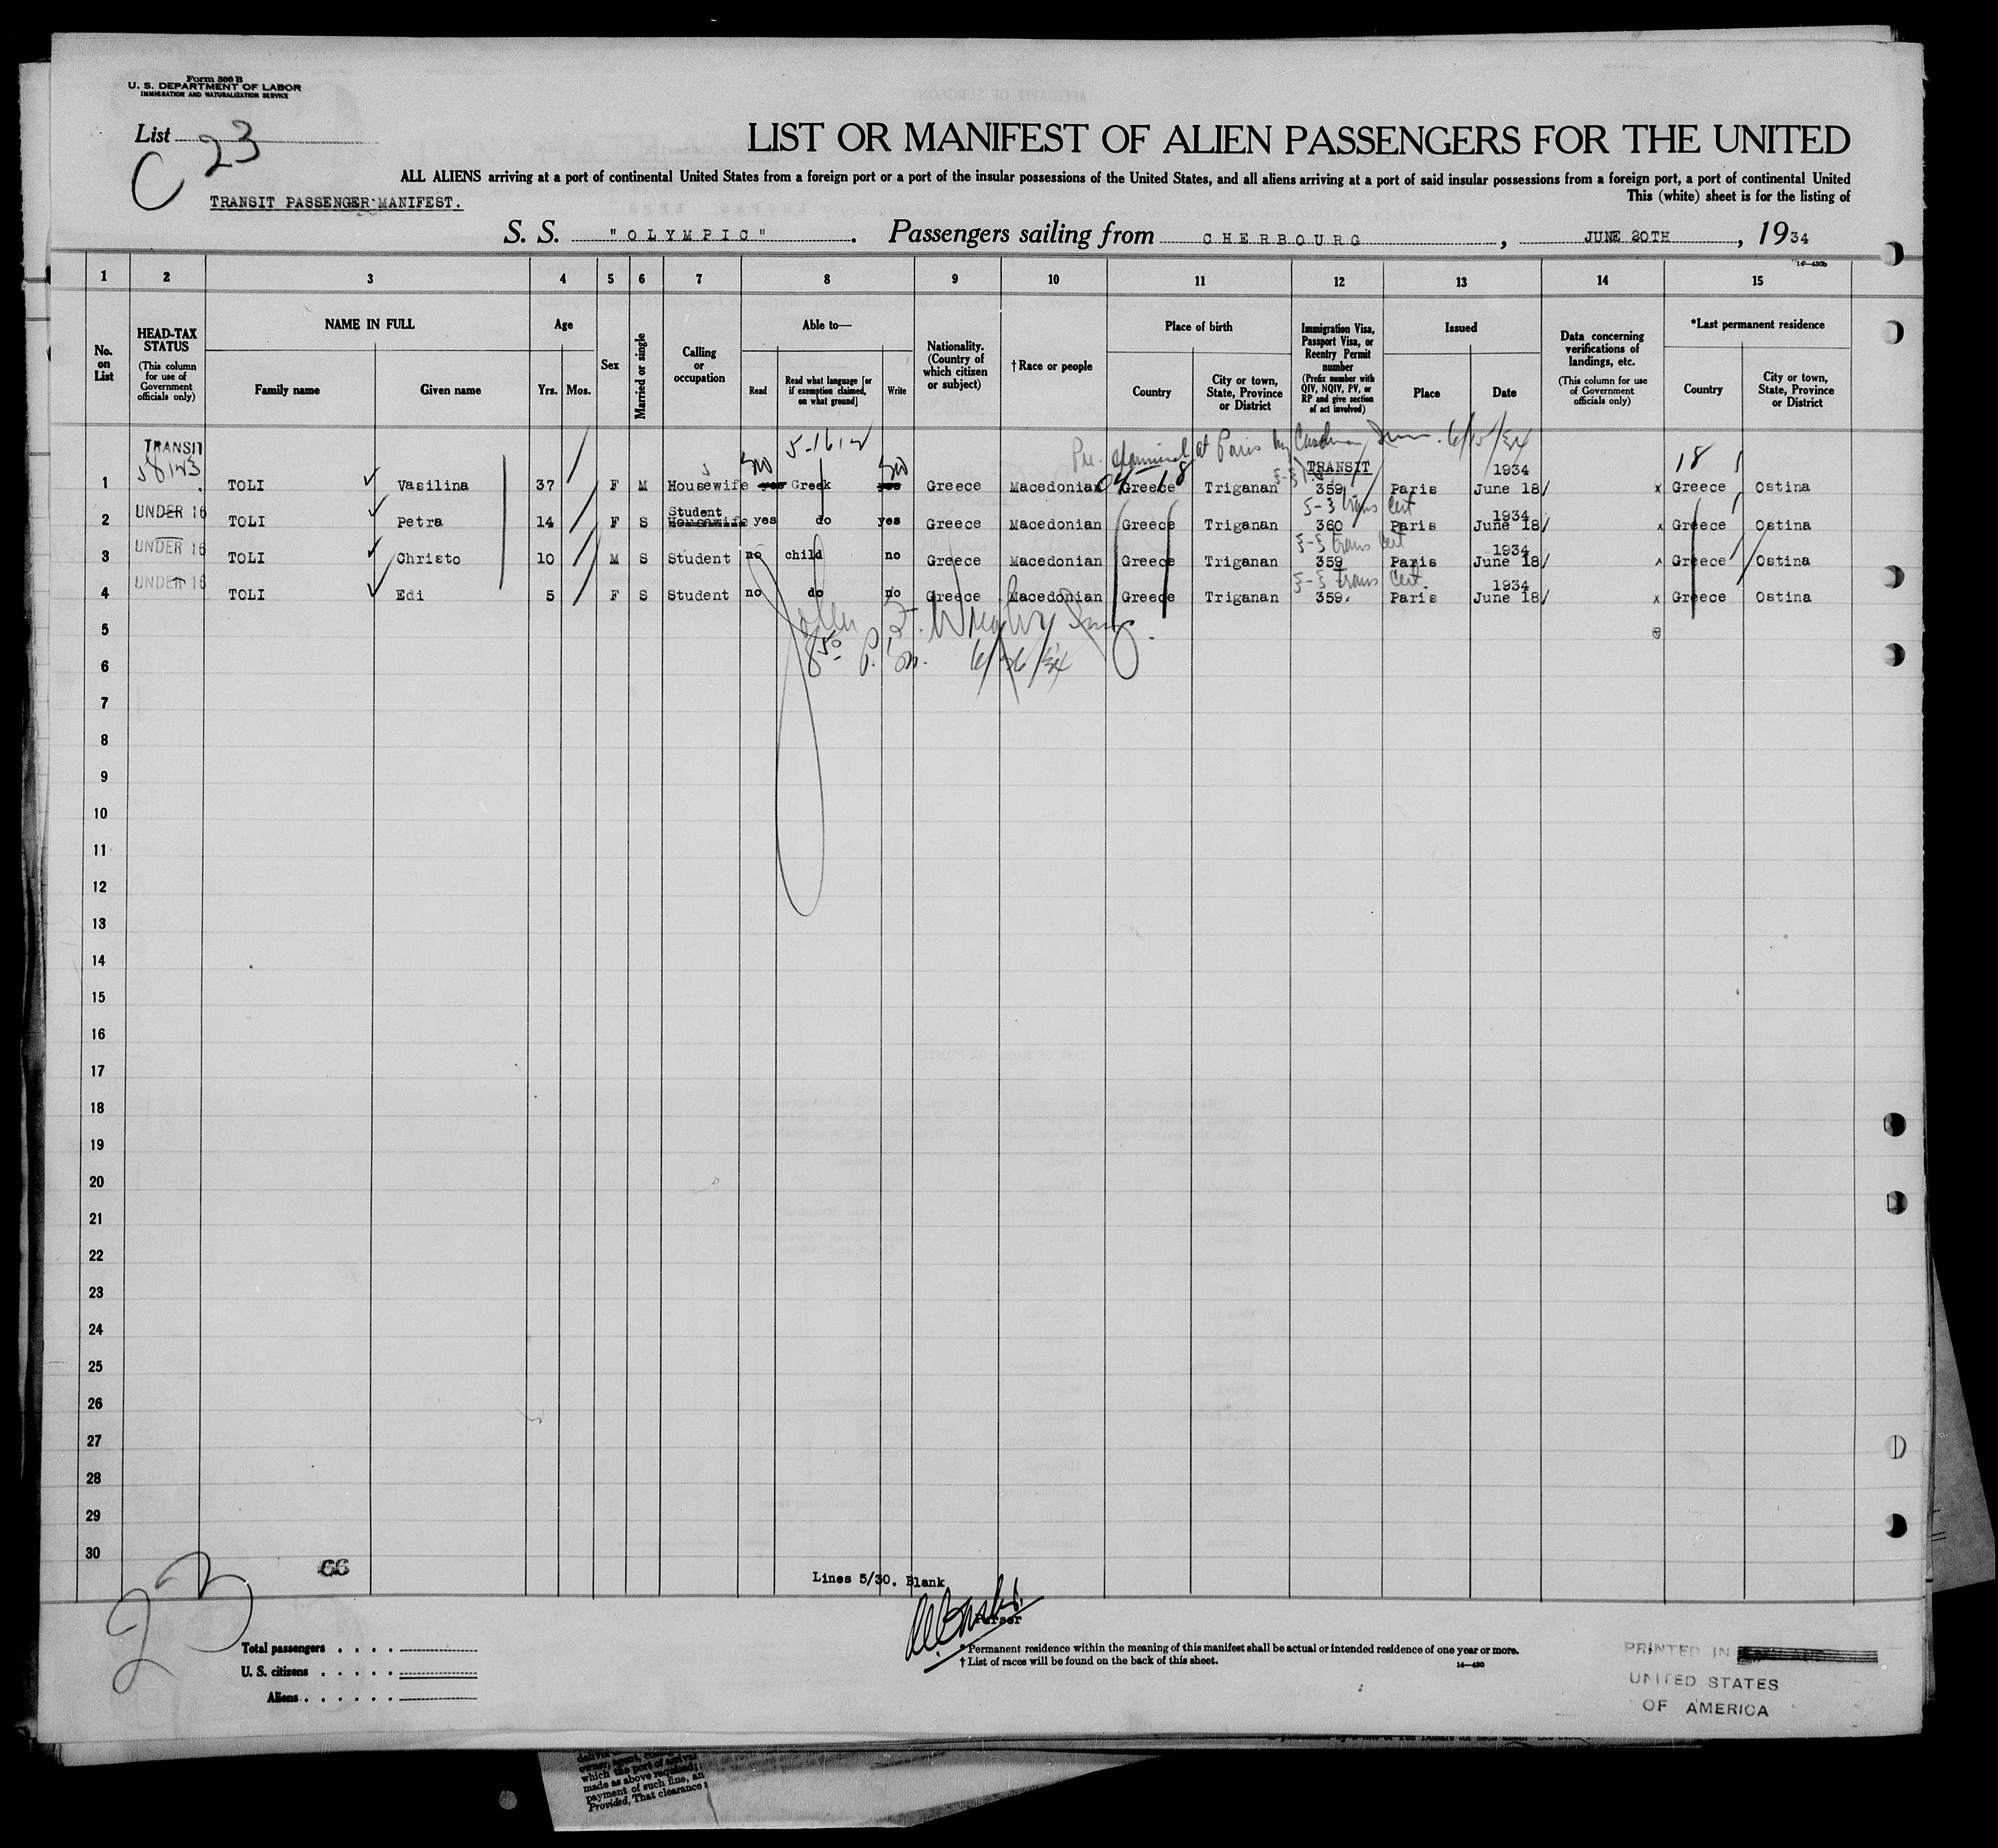 Form 500 B
U. S. DEPARTMENT OF LABOR
IMMIGRATION AND NATURALIZATION SERVICE
List 23
C
LIST OR MANIFEST OF ALIEN PASSENGERS FOR THE UNITED
ALL ALIENS arriving at a port of continental United States from a foreign port or a port of the insular possessions of the United States, and all aliens arriving at a port of said insular possessions from a foreign port, a port of continental United
TRANSIT PASSENGER MANIFEST.
This (white) sheet is for the listing of
S. S. "OLYMPIC". Passengers sailing from CHERBOURG, JUNE 20TH, 1934
1 2 3 4 5 6 7 8 9 10 11 12 13 14 15
No. on List
HEAD-TAX STATUS
(This column for use of Government officials only)
NAME IN FULL
Family name Given name
Age
Yrs. Mos.
Sex
Married or single
Calling or occupation
Able to—
Read
Read what language [or if exemption claimed, on what ground]
Write
Nationality. (Country of which citizen or subject)
†Race or people
Place of birth
Country
City or town, State, Province or District
Immigration Visa, Passport Visa, or Reentry Permit number
(Prefix number with QIV, NQIV, PV, or RP and give section of act involved)
Issued
Place Date
Data concerning verifications of landings, etc.
(This column for use of Government officials only)
*Last permanent residence
Country
City or town, State, Province or District
at Paris by
TRANSIT TRANSIT 1934 18
1 TOLI Vasilina 37 F M Housewife yes Greek yes Greece Macedonian Greece Triganan 359 Paris June 18 x Greece Ostina
UNDER 16 Student Trans Cert 1934
2 TOLI Petra 14 F S Housewife yes do yes Greece Macedonian Greece Triganan 360 Paris June 18 x Greece Ostina
UNDER 16 Trans Cert 1934
3 TOLI Christo 10 M S Student no child no Greece Macedonian Greece Triganan 359 Paris June 18 Greece Ostina
UNDER 16 Trans Cert. 1934
4 TOLI Edi 5 F S Student no do no Greece Macedonian Greece Triganan 359. Paris June 18 x Greece Ostina
5
6
7
8
9
10
11
12
13
14
15
16
17
18
19
20
21
22
23
24
25
26
27
28
29
30
66
23
Lines 5/30. Blank
Purser
Total passengers
U. S. citizens
Aliens
* Permanent residence within the meaning of this manifest shall be actual or intended residence of one year or more.
† List of races will be found on the back of this sheet.
14—430
PRINTED IN
UNITED STATES
OF AMERICA
which the port of arrival
made as above required;
payment of such fine, an
Provided, That clearance